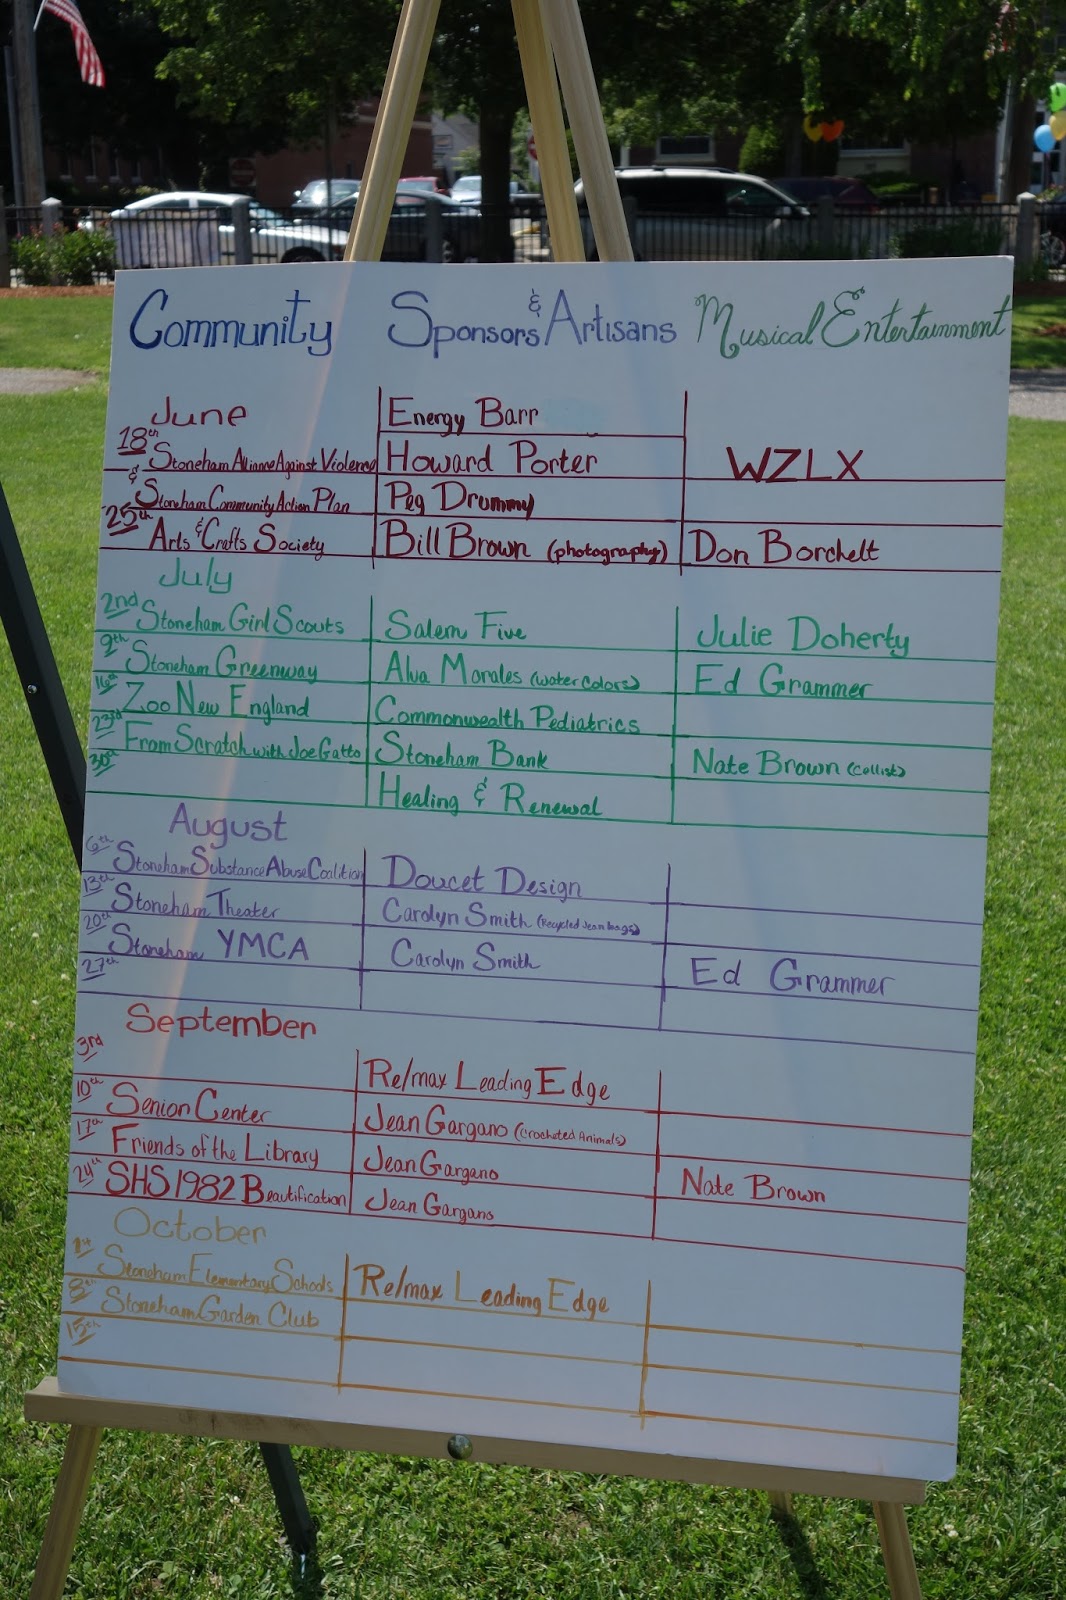 Community Sponsors & Artisans Musical Entertainment
June Energy Barr
18th Stoneham Alliance Against Violence Howard Porter WZLX
& Stoneham Community Action Plan Peg Drummy
25th Arts & Crafts Society Bill Brown (photography) Don Borchelt
July
2nd Stoneham Girl Scouts Salem Five Julie Doherty
9th Stoneham Greenway Alva Morales (water colors) Ed Grammer
16th Zoo New England Commonwealth Pediatrics
23rd From Scratch with Joe Gatto Stoneham Bank Nate Brown (Cellist)
30th Healing & Renewal
August
6th Stoneham Substance Abuse Coalition Doucet Design
13th Stoneham Theater Carolyn Smith (Recycled Jean bags)
20th Stoneham YMCA Carolyn Smith Ed Grammer
27th
September
3rd Re/max Leading Edge
10th Senion Center Jean Gargano (Crocheted Animals)
17th Friends of the Library Jean Gargano Nate Brown
24th SHS 1982 Beautification Jean Gargano
October
1st Stoneham Elementary Schools Re/max Leading Edge
8th Stoneham Garden Club
15th